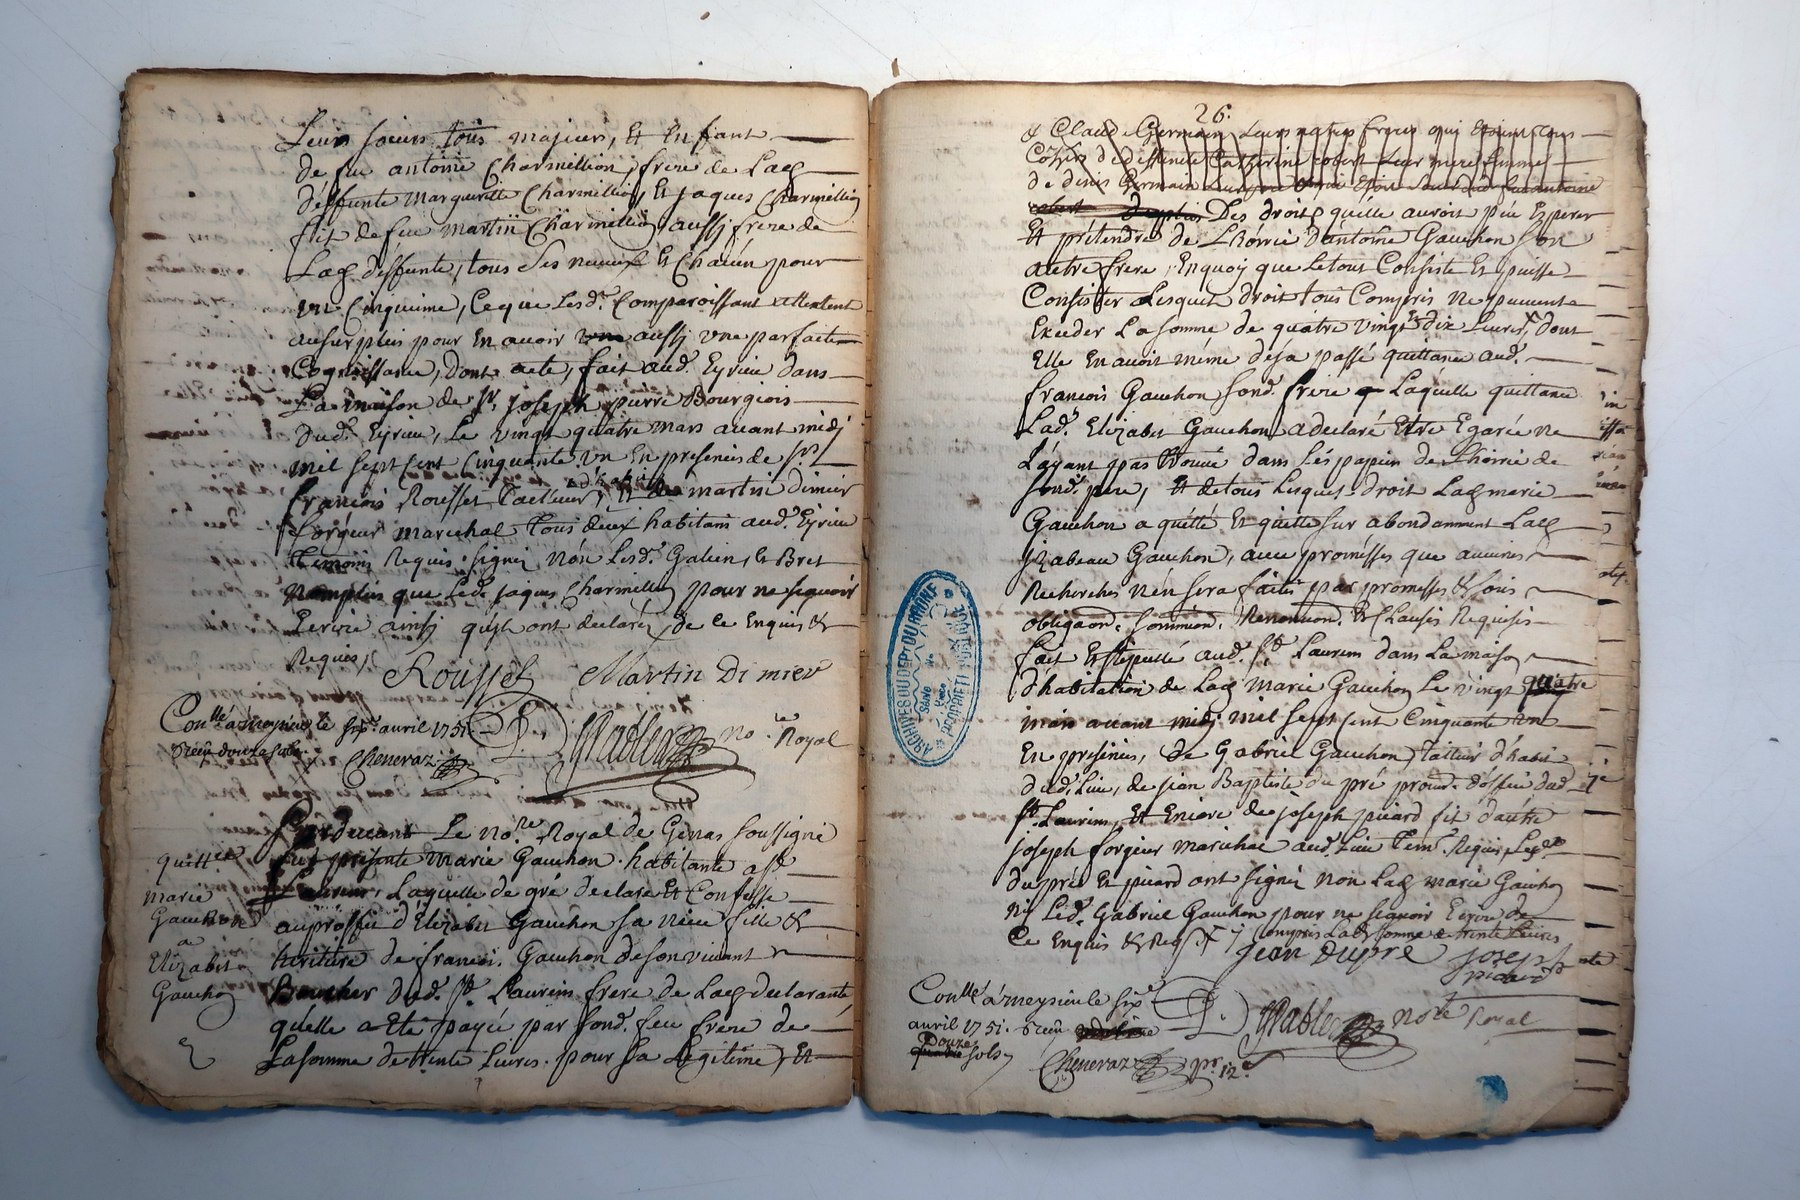 Leurs soeurs tous majeurs, Et Enfant
de feu antoine Charmillion, frere de Lad
deffunte Margueritte Charmillion Et jaques Charmillion
fils de feu martin Charmillion aussj frere de
Lad deffunte, tous ses neveux Et Chacun pour
un Cinquieme, Ce que Lesd. Comparoissant attestent
au surplus pour En avoir aussj une parfaite
Cognoissance, Dont acte, fait aud. Eyrieu dans
La maison de sr. joseph pierre Bourgeois
dud. Eyrieu, Le vingt quatre mars avant midj
mil sept Cent Cinquante un En presences de srs
francois Rousset Tailleur d'habits Et martin dimier
forgeur marechal tous deux habitans aud. Eyrieu
temoins Requis signés Non Lesd. Galien, Le Bret
Non plus que Led. jaques Charmillion pour ne sçavoir
Ecrire ainsj qu'ils ont declarés de ce Enquis &
Requis,
Rousset Martin Dimier
Conllé à meysieu le six. avril 1751
Recu douze sols
Cheneraz
No.re Royal
Pardevant Le No.re Royal de Genas soussigné
fut presente Marie Gauchon habitante a st
Laurens, Laquelle de gré declare Et Confesse
au proffit d'Elizabet Gauchon sa niece fille &
heritiere de francois Gauchon de son vivant
Boucher dud. st. Laurens frere de Lad declarante
quelle a Eté payée par sond. feu frere de
La somme de trente Livres pour sa Legitime, Et
quitt.ce
marie
Gauchon
a
Elizabet
Gauchon
26.
& Claude Germain Leurs
de denis Germain
Des droits quelle auroit peu Esperer
Et prétendre de L'hoirie d'antoine Gauchon son
autre frere, En quoy que Le tout Consiste Et puisse
Consister Lesquels droit tous Compris ne peuvent
Exceder La somme de quatre vingts dix Livres, dont
Elle En avoit méme déja passé quittance aud.
francois Gauchon sond. frere Laquelle quittance
Lad. Elizabet Gauchon a declaré Etre Egarée ne
L'ayant pas trouvé dans Les papiers de L'hoirie de
sond. pere, Et de tous Lesquels droit Lad marie
Gauchon a quitté Et quitte sur abondamment Lad
jzabeau Gauchon, avec promesses que aucunes
Recherches n'en sera faites par promesses & sous
obligaon. Renonciaon. Et Clauses Requises
fait Et stipullé aud. st. Laurens dans La maison
d'habitation de Lad Marie Gauchon Le vingt quatre
mars avant midj mil sept Cent Cinquante un
En presences, de Gabriel Gauchon tailleur d'habit
dud. Lieu, de jean Baptiste du pré dud
st. Laurens, Et Encore de joseph picard fils d'autre
joseph forgeur marechal aud. Lieu Tem. Requis Lesd.
dupré Et picard ont signés Non Lad marie Gauchon
Nj Led. Gabriel Gauchon pour ne sçavoir Ecrire de
Ce Enquis & Req
Compris Lad somme de trente Livres
Jean Dupré Joseph
picard
Conllé à meysieu le six.
avril 1751. Recu
Douze
sols
Cheneraz
No.re Royal
pr. 12 s
ARCHIVES DU DEPT DU RHONE
PROPRIETE PUBLIQUE